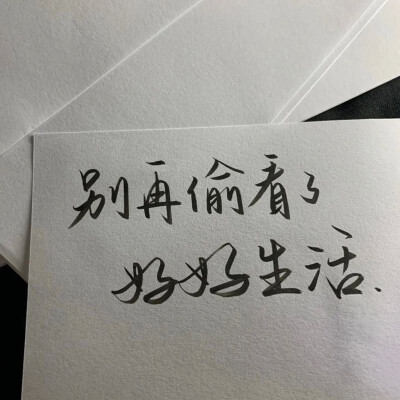 别再偷看了
好好生活、